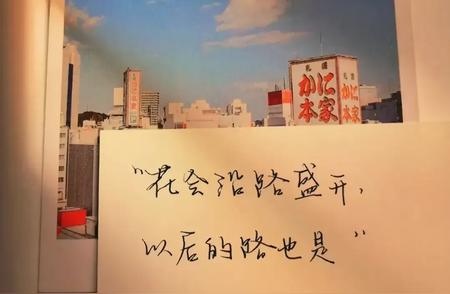 札幌
かに
本家
札幌
かに
本家
"花会沿路盛开,
以后的路也是"